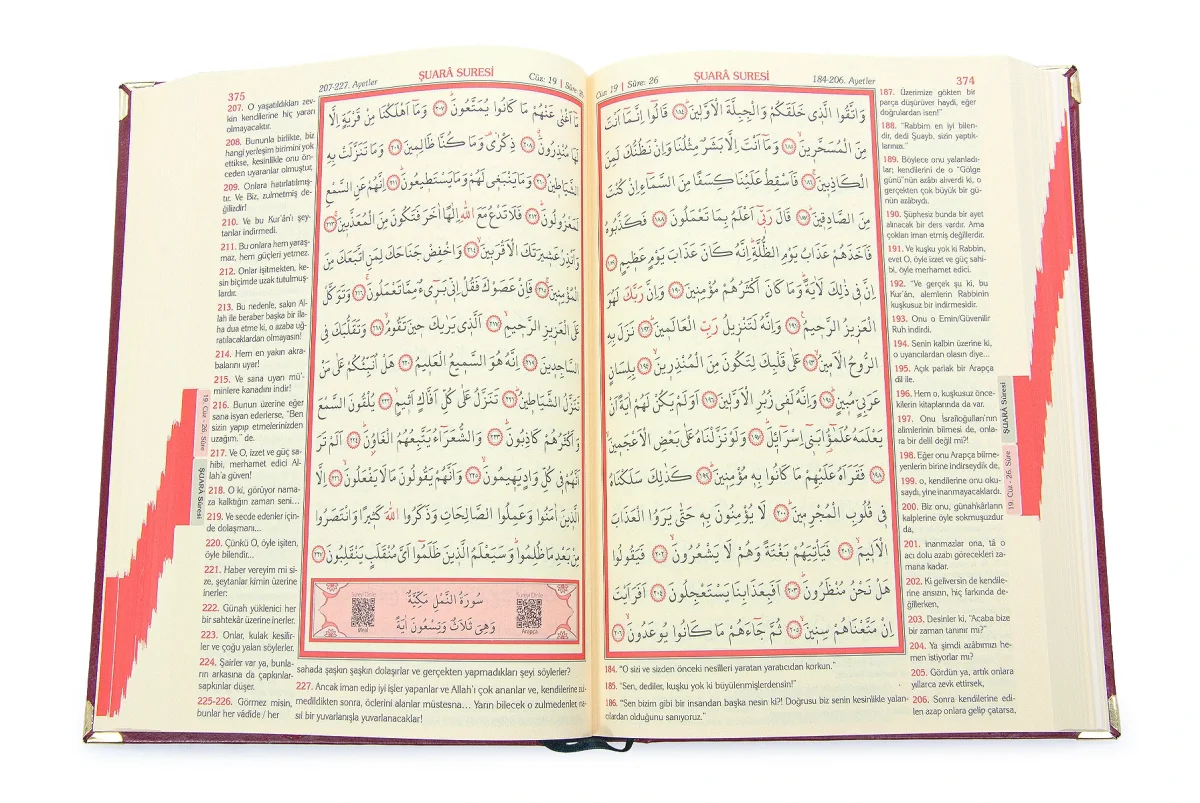 Cüz: 19 | Sûre: 26 ŞUARÂ SURESİ 184-206. Ayetler 374
وَاتَّقُوا الَّذٖي خَلَقَكُمْ وَالْجِبِلَّةَ الْاَوَّلٖينَؕ ﴿١٨٤﴾ قَالُٓوا اِنَّمَٓا اَنْتَ
مِنَ الْمُسَحَّرٖينَۙ ﴿١٨٥﴾ وَمَٓا اَنْتَ اِلَّا بَشَرٌ مِثْلُنَا وَاِنْ نَظُنُّكَ لَمِنَ
الْكَاذِبٖينَۚ ﴿١٨٦﴾ فَاَسْقِطْ عَلَيْنَا كِسَفاً مِنَ السَّمَٓاءِ اِنْ كُنْتَ
مِنَ الصَّادِقٖينَؕ ﴿١٨٧﴾ قَالَ رَبّٖٓي اَعْلَمُ بِمَا تَعْمَلُونَ ﴿١٨٨﴾ فَكَذَّبُوهُ
فَاَخَذَهُمْ عَذَابُ يَوْمِ الظُّلَّةِؕ اِنَّهُ كَانَ عَذَابَ يَوْمٍ عَظٖيمٍ ﴿١٨٩﴾
اِنَّ فٖي ذٰلِكَ لَاٰيَةًؕ وَمَا كَانَ اَكْثَرُهُمْ مُؤْمِنٖينَ ﴿١٩٠﴾ وَاِنَّ رَبَّكَ لَهُوَ
الْعَزٖيزُ الرَّحٖيمُ۟ ﴿١٩١﴾ وَاِنَّهُ لَتَنْزٖيلُ رَبِّ الْعَالَمٖينَؕ ﴿١٩٢﴾ نَزَلَ بِهِ
الرُّوحُ الْاَمٖينُۙ ﴿١٩٣﴾ عَلٰى قَلْبِكَ لِتَكُونَ مِنَ الْمُنْذِرٖينَۙ ﴿١٩٤﴾ بِلِسَانٍ
عَرَبِيٍّ مُبٖينٍؕ ﴿١٩٥﴾ وَاِنَّهُ لَفٖي زُبُرِ الْاَوَّلٖينَ ﴿١٩٦﴾ اَوَلَمْ يَكُنْ لَهُمْ اٰيَةً اَنْ
يَعْلَمَهُ عُلَمٰٓؤُا بَنٖٓي اِسْرَٓائٖلَؕ ﴿١٩٧﴾ وَلَوْ نَزَّلْنَاهُ عَلٰى بَعْضِ الْاَعْجَمٖينَۙ
﴿١٩٨﴾ فَقَرَاَهُ عَلَيْهِمْ مَا كَانُوا بِهٖ مُؤْمِنٖينَؕ ﴿١٩٩﴾ كَذٰلِكَ سَلَكْنَاهُ
فٖي قُلُوبِ الْمُجْرِمٖينَؕ ﴿٢٠٠﴾ لَا يُؤْمِنُونَ بِهٖ حَتّٰى يَرَوُا الْعَذَابَ
الْاَلٖيمَۙ ﴿٢٠١﴾ فَيَأْتِيَهُمْ بَغْتَةً وَهُمْ لَا يَشْعُرُونَۙ ﴿٢٠٢﴾ فَيَقُولُوا
هَلْ نَحْنُ مُنْظَرُونَؕ ﴿٢٠٣﴾ اَفَبِعَذَابِنَا يَسْتَعْجِلُونَ ﴿٢٠٤﴾ اَفَرَاَيْتَ
اِنْ مَتَّعْنَاهُمْ سِنٖينَۙ ﴿٢٠٥﴾ ثُمَّ جَٓاءَهُمْ مَا كَانُوا يُوعَدُونَۙ ﴿٢٠٦﴾
184. "O sizi ve sizden önceki nesilleri yaratan yaratıcıdan korkun."
185. "Sen, dediler, kuşku yok ki büyülenmişlerdensin!"
186. "Sen bizim gibi bir insandan başka nesin ki?! Doğrusu biz senin kesinlikle yalan-
lardan olduğunu sanıyoruz."
187. Üzerimize gökten bir
parça düşürüver haydi, eğer
doğrulardan isen!"
188. "Rabbim en iyi bilen-
dir, dedi Şuayb, sizin yaptık-
larınızı."
189. Böylece onu yalanladı-
lar; kendilerini de o "Gölge
günü"nün azâbı alıverdi ki, o
gerçekten çok büyük bir gü-
nün azâbıydı.
190. Şüphesiz bunda bir ayet
alınacak bir ders vardır. Ama
çokları iman etmiş değillerdir.
191. Ve kuşku yok ki Rabbin,
evet O, öyle izzet ve güç sahi-
bi, öyle merhamet edici.
192. "Ve gerçek şu ki, bu
Kur'ân, alemlerin Rabbinin
kuşkusuz bir indirmesidir.
193. Onu o Emin/Güvenilir
Ruh indirdi.
194. Senin kalbin üzerine ki,
o uyarıcılardan olasın diye...
195. Açık parlak bir Arapça
dil ile.
196. Hem o, kuşkusuz önce-
kilerin kitaplarında da var.
197. Onu İsrailoğulları'nın
alimlerinin bilmesi de, onla-
ra bir delil değil mi?!
198. Eğer onu Arapça bilme-
yenlerin birine indirseydik de.
199. o, kendilerine onu oku-
saydı, yine inanmayacaklardı.
200. Biz onu, günahkârların
kalplerine öyle sokmuşuzdur
da,
201. inanmazlar ona, tâ o
acı dolu azabı görecekleri za-
mana kadar.
202. Ki geliversin de kendile-
rine ansızın, hiç farkında de-
ğillerken,
203. Desinler ki, "Acaba bize
bir zaman tanınır mı?"
204. Ya şimdi azâbımızı he-
men istiyorlar mı?
205. Gördün ya, artık onlara
yıllarca zevk ettirsek,
206. Sonra kendilerine edi-
len azap onlara gelip çatarsa,
ŞUARÂ Sûresi
19. Cüz - 26. Sûre
375 207-227. Ayetler ŞUARÂ SURESİ Cüz: 19 | Sûre: 26
مَٓا اَغْنٰى عَنْهُمْ مَا كَانُوا يُمَتَّعُونَؕ ﴿٢٠٧﴾ وَمَٓا اَهْلَكْنَا مِنْ قَرْيَةٍ اِلَّا
لَهَا مُنْذِرُونَۗۛ ﴿٢٠٨﴾ ذِكْرٰىۛ وَمَا كُنَّا ظَالِمٖينَ ﴿٢٠٩﴾ وَمَا تَنَزَّلَتْ بِهِ
الشَّيَاطٖينُ ﴿٢١٠﴾ وَمَا يَنْبَغٖي لَهُمْ وَمَا يَسْتَطٖيعُونَؕ ﴿٢١١﴾ اِنَّهُمْ عَنِ السَّمْعِ
لَمَعْزُولُونَؕ ﴿٢١٢﴾ فَلَا تَدْعُ مَعَ اللّٰهِ اِلٰهاً اٰخَرَ فَتَكُونَ مِنَ الْمُعَذَّبٖينَۚ ﴿٢١٣﴾
وَاَنْذِرْ عَشٖيرَتَكَ الْاَقْرَبٖينَۙ ﴿٢١٤﴾ وَاخْفِضْ جَنَاحَكَ لِمَنِ اتَّبَعَكَ مِنَ
الْمُؤْمِنٖينَۚ ﴿٢١٥﴾ فَاِنْ عَصَوْكَ فَقُلْ اِنّٖي بَرٖٓيءٌ مِمَّا تَعْمَلُونَۚ ﴿٢١٦﴾ وَتَوَكَّلْ
عَلَى الْعَزٖيزِ الرَّحٖيمِۙ ﴿٢١٧﴾ اَلَّذٖي يَرٰيكَ حٖينَ تَقُومُۙ ﴿٢١٨﴾ وَتَقَلُّبَكَ فِي
السَّاجِدٖينَ ﴿٢١٩﴾ اِنَّهُ هُوَ السَّمٖيعُ الْعَلٖيمُ ﴿٢٢٠﴾ هَلْ اُنَبِّئُكُمْ عَلٰى مَنْ
تَنَزَّلُ الشَّيَاطٖينُؕ ﴿٢٢١﴾ تَنَزَّلُ عَلٰى كُلِّ اَفَّاكٍ اَثٖيمٍۙ ﴿٢٢٢﴾ يُلْقُونَ السَّمْعَ
وَاَكْثَرُهُمْ كَاذِبُونَؕ ﴿٢٢٣﴾ وَالشُّعَرَٓاءُ يَتَّبِعُهُمُ الْغَاوُ۫نَؕ ﴿٢٢٤﴾ اَلَمْ تَرَ
اَنَّهُمْ فٖي كُلِّ وَادٍ يَهٖيمُونَۙ ﴿٢٢٥﴾ وَاَنَّهُمْ يَقُولُونَ مَا لَا يَفْعَلُونَۙ ﴿٢٢٦﴾ اِلَّا
الَّذٖينَ اٰمَنُوا وَعَمِلُوا الصَّالِحَاتِ وَذَكَرُوا اللّٰهَ كَثٖيراً وَانْتَصَرُوا
مِنْ بَعْدِ مَا ظُلِمُواؕ وَسَيَعْلَمُ الَّذٖينَ ظَلَمُٓوا اَيَّ مُنْقَلَبٍ يَنْقَلِبُونَ ﴿٢٢٧﴾
سُورَةُ النَّمْلِ مَكِّيَّةٌ
وَهِيَ ثَلَاثٌ وَتِسْعُونَ اٰيَةً
Sureyi Dinle
Meal
Sureyi Dinle
Arapça
207. O yaşatıldıkları zev-
kin kendilerine hiç yararı
olmayacaktır.
208. Bununla birlikte, biz
hangi yerleşim birimini yok
ettikse, kesinlikle onu ön-
ceden uyaranlar olmuştur,
209. Onlara hatırlatılmış-
tır. Ve Biz, zulmetmiş de-
ğilizdir!
210. Ve bu Kur'ân'ı şey-
tanlar indirmedi.
211. Bu onlara hem yaraş-
maz, hem güçleri yetmez.
212. Onlar işitmekten, ke-
sin biçimde uzak tutulmuş-
lardır.
213. Bu nedenle, sakın Al-
lah ile beraber başka bir ila-
ha dua etme ki, o azaba uğ-
ratılacaklardan olmayasın!
214. Hem en yakın akra-
balarını uyar!
215. Ve sana uyan mü'-
minlere kanadını indir!
216. Bunun üzerine eğer
sana isyan ederlerse, "Ben
sizin yapıp etmelerinizden
uzağım." de.
217. Ve O, izzet ve güç sa-
hibi, merhamet edici Al-
lah'a güven!
218. O ki, görüyor nama-
za kalktığın zaman seni...
219. Ve secde edenler için-
de dolaşmanı...
220. Çünkü O, öyle işiten,
öyle bilendir...
221. Haber vereyim mi si-
ze, şeytanlar kimin üzerine
inerler:
222. Günah yüklenici her
bir sahtekâr üzerine inerler.
223. Onlar, kulak kesilir-
ler ve çoğu yalan söylerler.
224. Şairler var ya, bunla-
rın arkasına da çapkınlar-
sapkınlar düşer.
225-226. Görmez misin,
bunlar her vâdîde / her
sahada şaşkın şaşkın dolaşırlar ve gerçekten yapmadıkları şeyi söylerler?
227. Ancak iman edip iyi işler yapanlar ve Allah'ı çok ananlar ve, kendilerine zul-
medildikten sonra, öclerini alanlar müstesna... Yarın bilecek o zulmedenler, na-
sıl bir yuvarlanışla yuvarlanacaklar!
19. Cüz - 26. Sûre
ŞUARÂ Sûresi